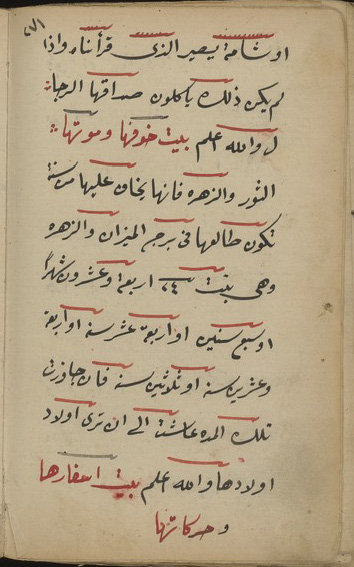 او شامة يصير الذى قرأناه واذا
لم يكن ذلك ياكلون صداقها الرجا
ل والله اعلم بيت خوفها وموتها
الثور والزهره فانها يخاف عليها من سنة
تكون طالعها فى برج الميزان والزهره
وهى بنت ٢٤ اربعة وعشرون شهرا
او سبع سنين او اربعة عشر سنة او اربعة
وعشرين سنة او ثلاثين سنة فان جاوزت
تلك المده عاشت الى ان ترى اولاد
اولادها والله اعلم بيت اسفارها
وحركاتها